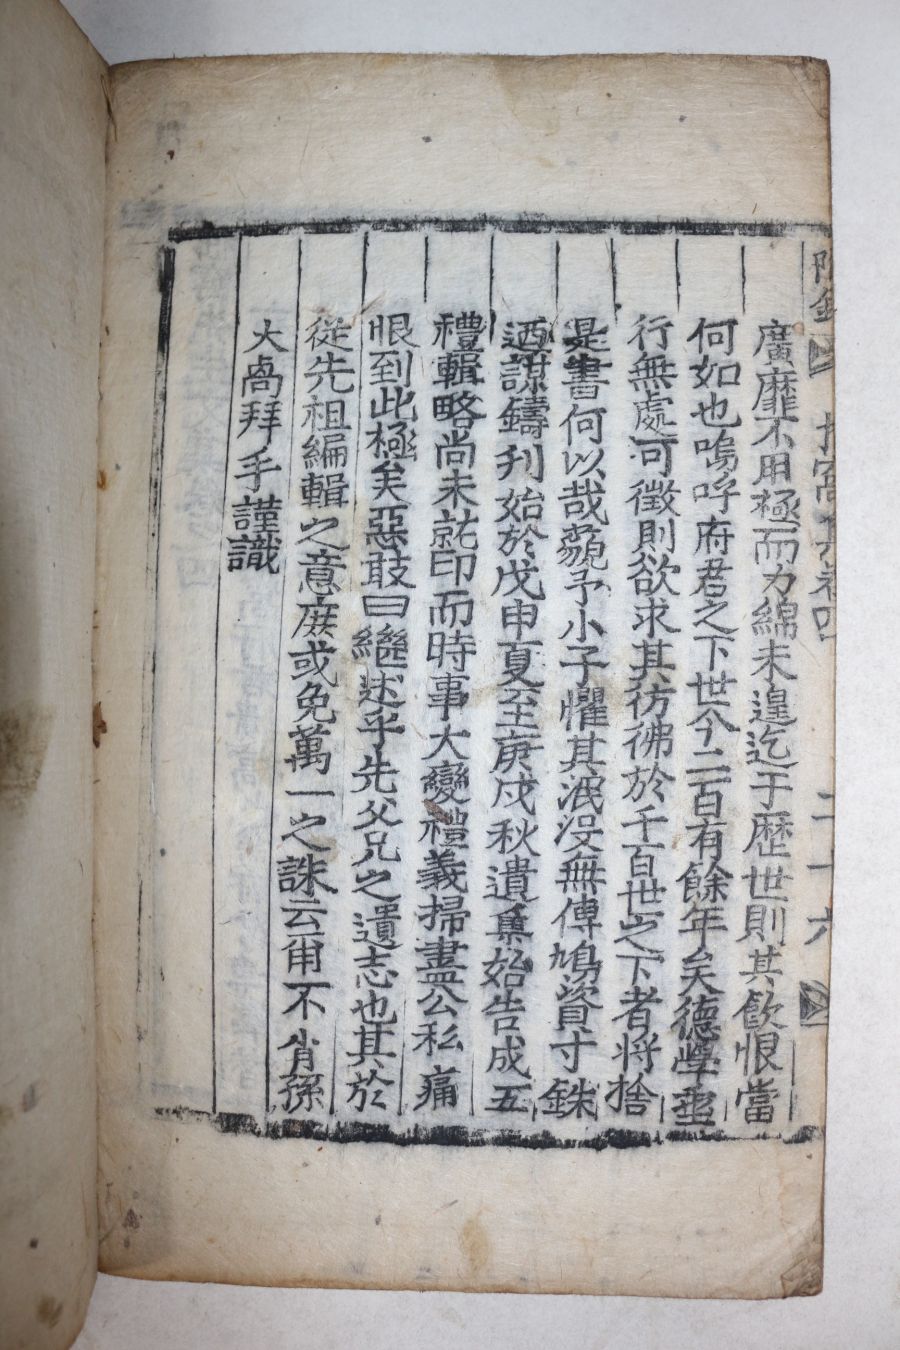 廣靡不用極而力綿未遑迄于歷世則其飮恨當
何如也嗚呼府君之下世今二百有餘年矣德學
行無處可徵則欲求其彷彿於千百世之下者將捨
是書何以哉藐予小子懼其泯沒無傳鳩資寸銖
迺謀鑄刋始於戊申夏至庚戌秋遺藁始告成五
禮輯略尚未就印而時事大變禮義掃盡公私痛
恨到此極矣惡敢曰繼述乎先父兄之遺志也其於
從先祖編輯之意庶或免萬一之誅云甭不肖孫
大卨拜手謹識
附錄
集卷四
二十六